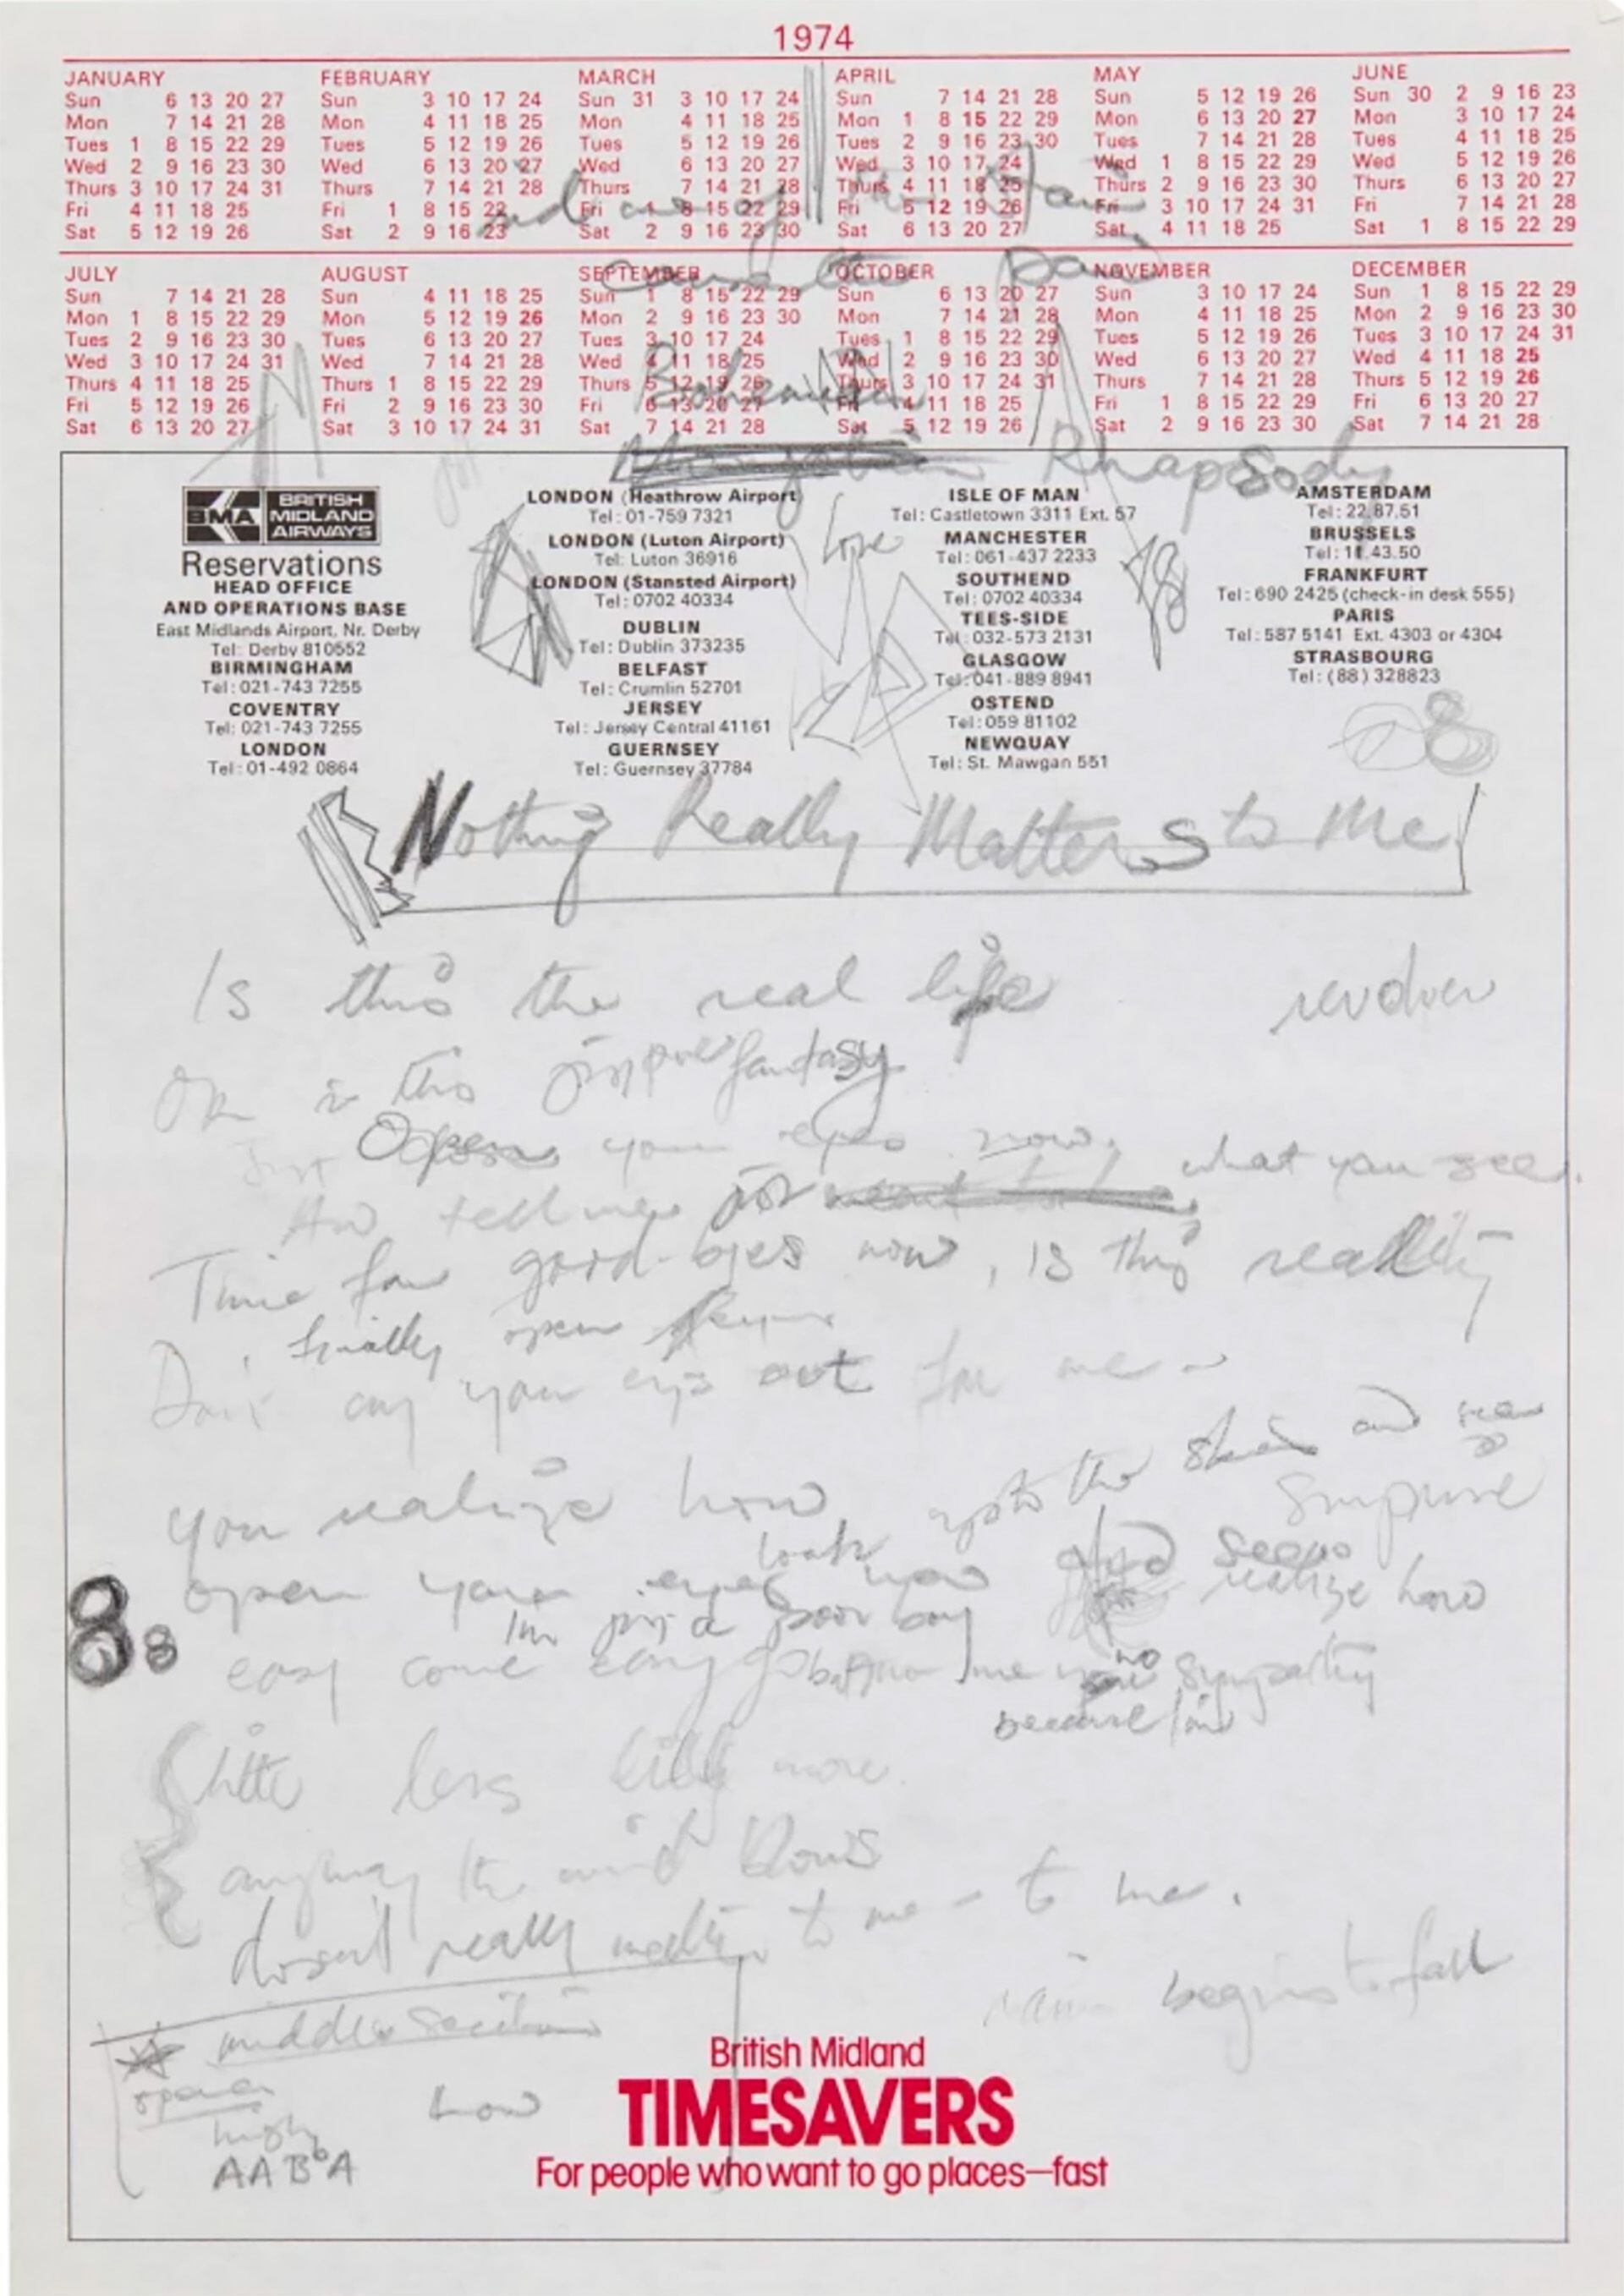 1974
JANUARY
Sun 6 13 20 27
Mon 7 14 21 28
Tues 1 8 15 22 29
Wed 2 9 16 23 30
Thurs 3 10 17 24 31
Fri 4 11 18 25
Sat 5 12 19 26
FEBRUARY
Sun 3 10 17 24
Mon 4 11 18 25
Tues 5 12 19 26
Wed 6 13 20 27
Thurs 7 14 21 28
Fri 1 8 15 22
Sat 2 9 16 23
MARCH
Sun 31 3 10 17 24
Mon 4 11 18 25
Tues 5 12 19 26
Wed 6 13 20 27
Thurs 7 14 21 28
Fri 1 8 15 22 29
Sat 2 9 16 23 30
APRIL
Sun 7 14 21 28
Mon 1 8 15 22 29
Tues 2 9 16 23 30
Wed 3 10 17 24
Thurs 4 11 18 25
Fri 5 12 19 26
Sat 6 13 20 27
MAY
Sun 5 12 19 26
Mon 6 13 20 27
Tues 7 14 21 28
Wed 1 8 15 22 29
Thurs 2 9 16 23 30
Fri 3 10 17 24 31
Sat 4 11 18 25
JUNE
Sun 30 2 9 16 23
Mon 3 10 17 24
Tues 4 11 18 25
Wed 5 12 19 26
Thurs 6 13 20 27
Fri 7 14 21 28
Sat 1 8 15 22 29
JULY
Sun 7 14 21 28
Mon 1 8 15 22 29
Tues 2 9 16 23 30
Wed 3 10 17 24 31
Thurs 4 11 18 25
Fri 5 12 19 26
Sat 6 13 20 27
AUGUST
Sun 4 11 18 25
Mon 5 12 19 26
Tues 6 13 20 27
Wed 7 14 21 28
Thurs 1 8 15 22 29
Fri 2 9 16 23 30
Sat 3 10 17 24 31
SEPTEMBER
Sun 1 8 15 22 29
Mon 2 9 16 23 30
Tues 3 10 17 24
Wed 4 11 18 25
Thurs 5 12 19 26
Fri 6 13 20 27
Sat 7 14 21 28
OCTOBER
Sun 6 13 20 27
Mon 7 14 21 28
Tues 1 8 15 22 29
Wed 2 9 16 23 30
Thurs 3 10 17 24 31
Fri 4 11 18 25
Sat 5 12 19 26
NOVEMBER
Sun 3 10 17 24
Mon 4 11 18 25
Tues 5 12 19 26
Wed 6 13 20 27
Thurs 7 14 21 28
Fri 1 8 15 22 29
Sat 2 9 16 23 30
DECEMBER
Sun 1 8 15 22 29
Mon 2 9 16 23 30
Tues 3 10 17 24 31
Wed 4 11 18 25
Thurs 5 12 19 26
Fri 6 13 20 27
Sat 7 14 21 28
Bohemian
Mongolian Rhapsody
BMA BRITISH MIDLAND AIRWAYS
Reservations
HEAD OFFICE
AND OPERATIONS BASE
East Midlands Airport, Nr. Derby
Tel: Derby 810552
BIRMINGHAM
Tel: 021-743 7255
COVENTRY
Tel: 021-743 7255
LONDON
Tel: 01-492 0864
LONDON (Heathrow Airport)
Tel: 01-759 7321
LONDON (Luton Airport)
Tel: Luton 36916
LONDON (Stansted Airport)
Tel: 0702 40334
DUBLIN
Tel: Dublin 373235
BELFAST
Tel: Crumlin 52701
JERSEY
Tel: Jersey Central 41161
GUERNSEY
Tel: Guernsey 37784
love
ISLE OF MAN
Tel: Castletown 3311 Ext. 57
MANCHESTER
Tel: 061-437 2233
SOUTHEND
Tel: 0702 40334
TEES-SIDE
Tel: 032-573 2131
GLASGOW
Tel: 041-889 8941
OSTEND
Tel: 059 81102
NEWQUAY
Tel: St. Mawgan 551
AMSTERDAM
Tel: 22.87.51
BRUSSELS
Tel: 11.43.50
FRANKFURT
Tel: 690 2425 (check-in desk 555)
PARIS
Tel: 587 5141 Ext. 4303 or 4304
STRASBOURG
Tel: (88) 328823
8
Nothing Really Matters to Me
Is this the real life
revolver
Or is this just fantasy
Just Open your eyes now, what you see.
And tell me
Time for good-byes now, is this reality
finally open
Don't cry your eyes out for me
you realize how up to the skies and see
surprise
look
open your eyes now realize how
I'm just a poor boy
easy come easy go no sympathy
because I'm
8 8
little less little more.
anyway the wind blows
doesn't really matter to me - to me.
rain begins to fall
middle section
how
high
AAB♭A
British Midland
TIMESAVERS
For people who want to go places—fast